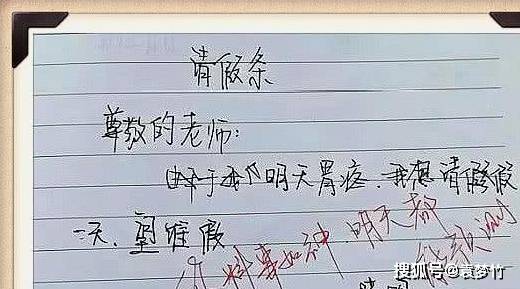 请假条
尊敬的老师:
由于我明天胃疼.我想请假假
一天.望准假
你料事如神.明天都
能预测
搜狐号@袁梦竹